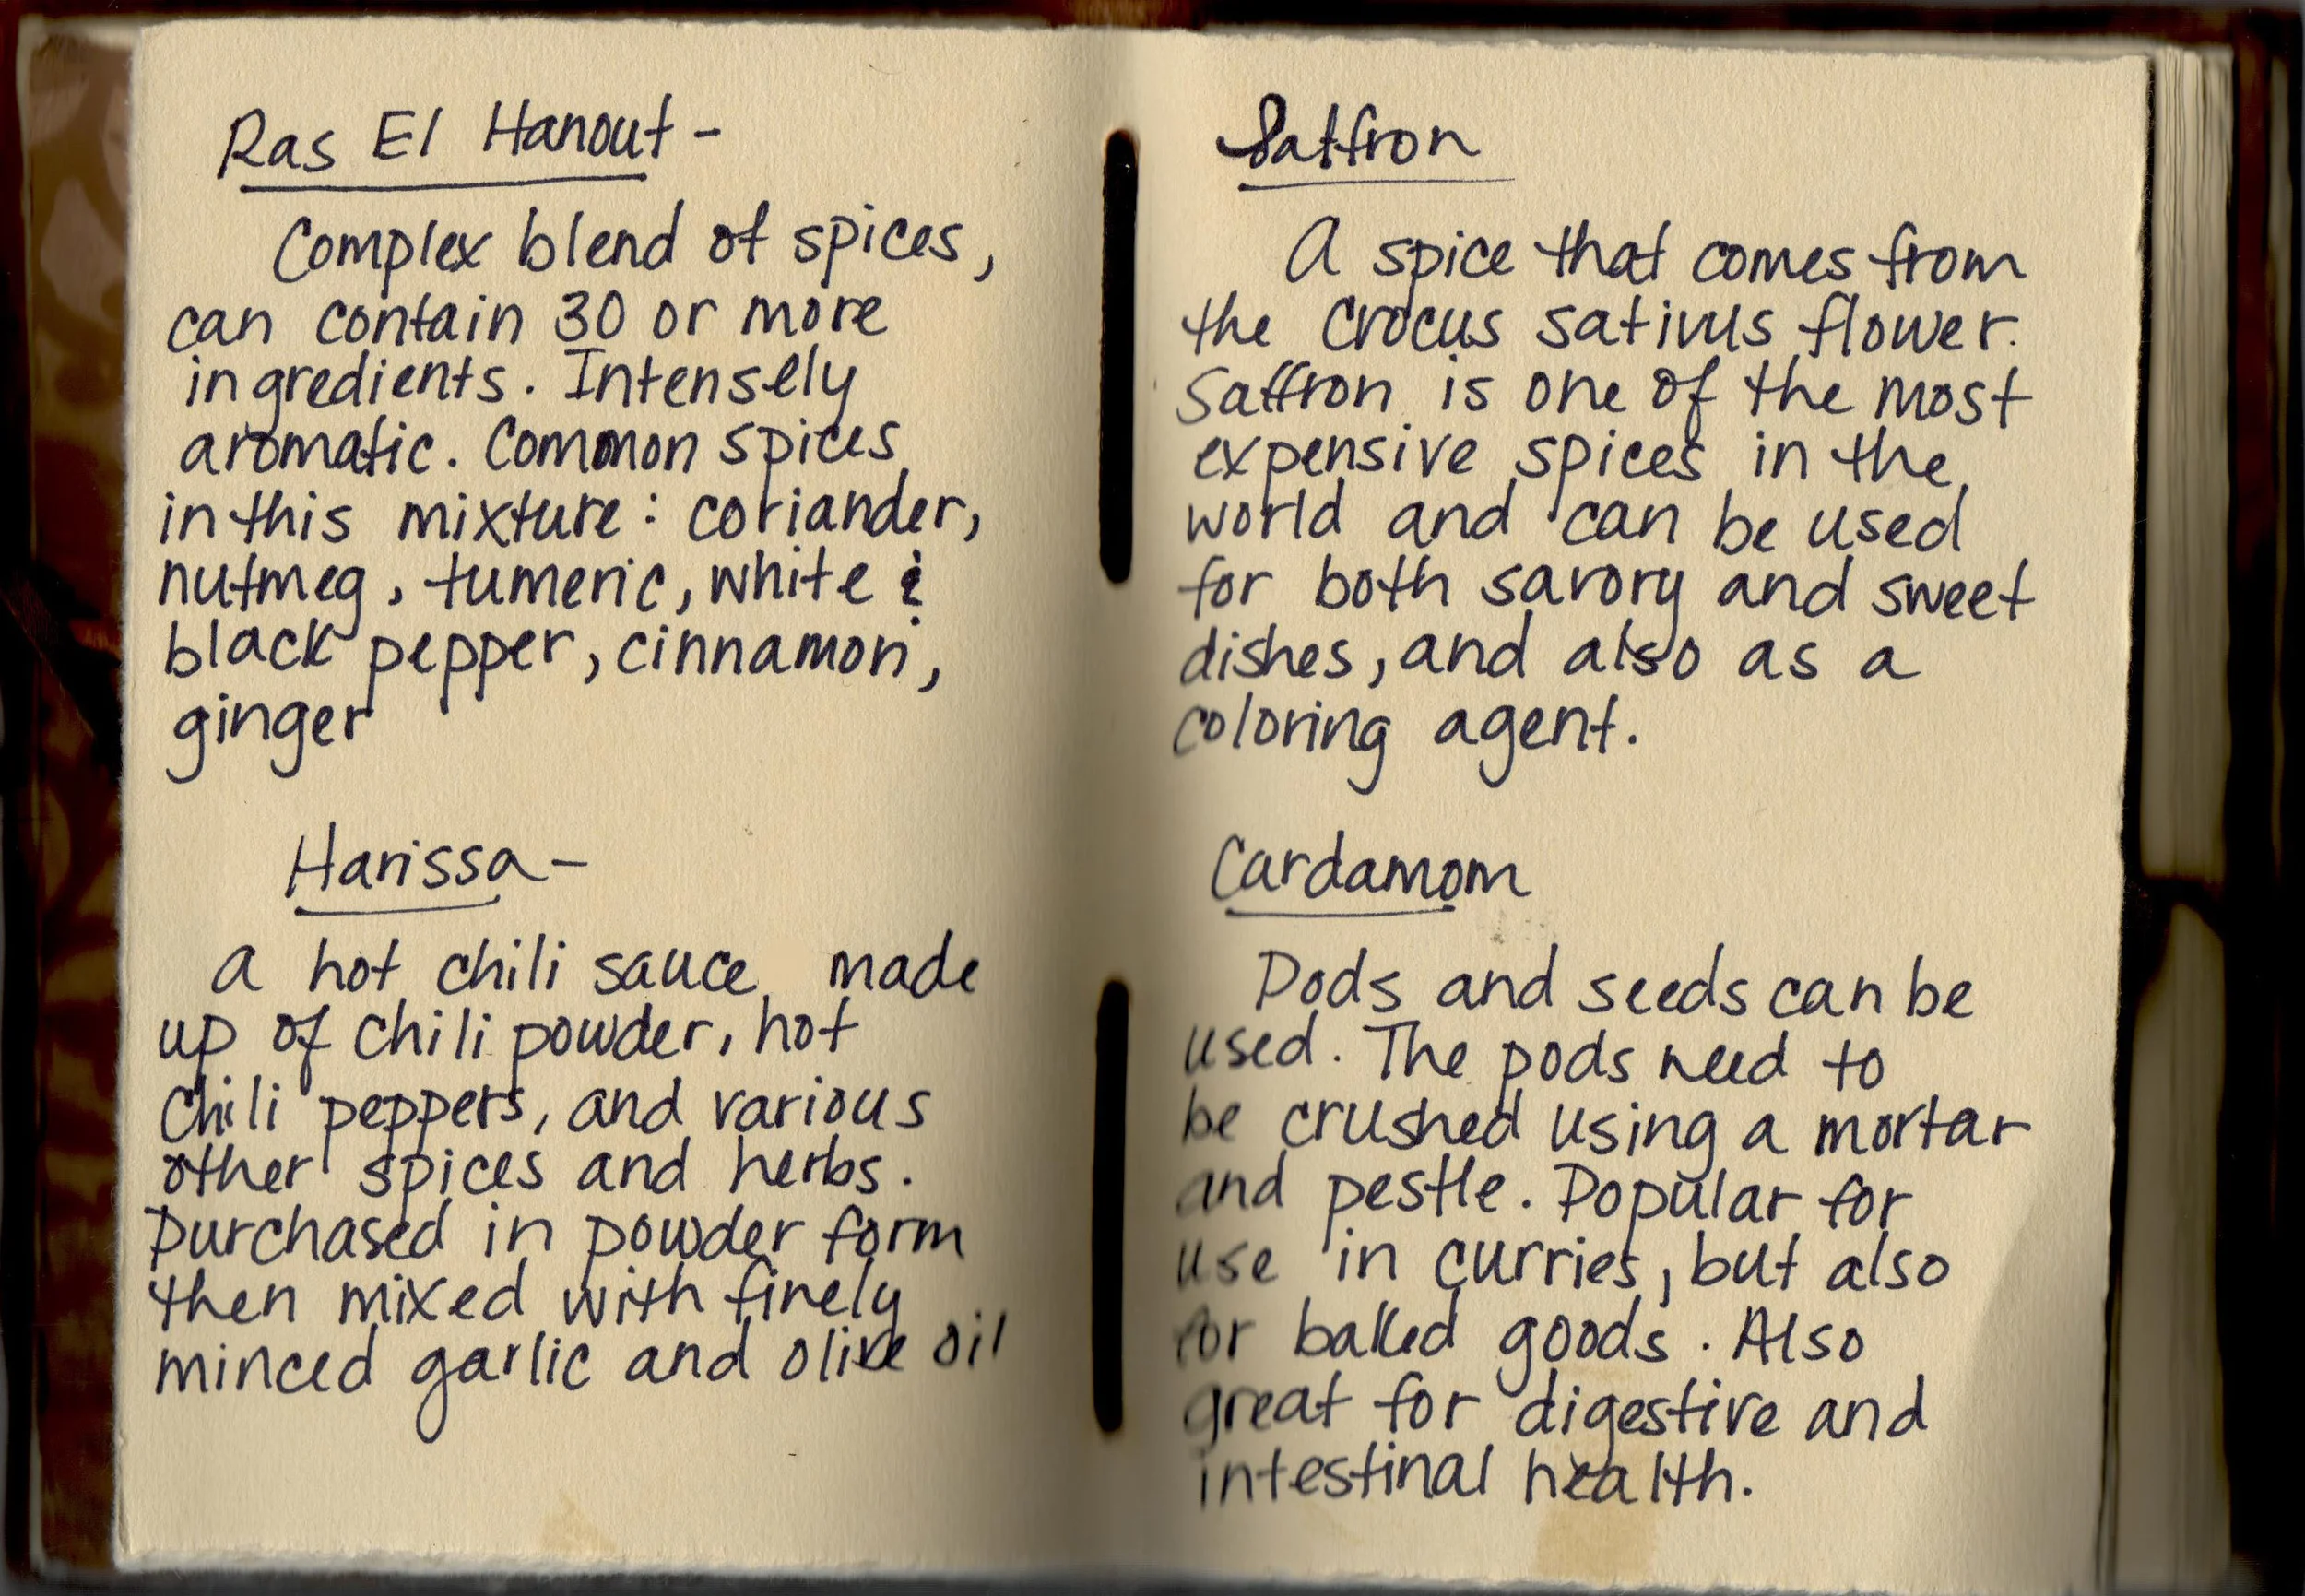 Ras El Hanout -
Complex blend of spices,
can contain 30 or more
ingredients. Intensely
aromatic. Common spices
in this mixture: coriander,
nutmeg, tumeric, white &
black pepper, cinnamon,
ginger
Harissa -
a hot chili sauce made
up of chili powder, hot
chili peppers, and various
other spices and herbs.
Purchased in powder form
then mixed with finely
minced garlic and olive oil
Saffron
A spice that comes from
the Crocus sativus flower.
Saffron is one of the most
expensive spices in the
world and can be used
for both savory and sweet
dishes, and also as a
coloring agent.
Cardamom
Pods and seeds can be
used. The pods need to
be crushed using a mortar
and pestle. Popular for
use in curries, but also
for baked goods. Also
great for digestive and
intestinal health.